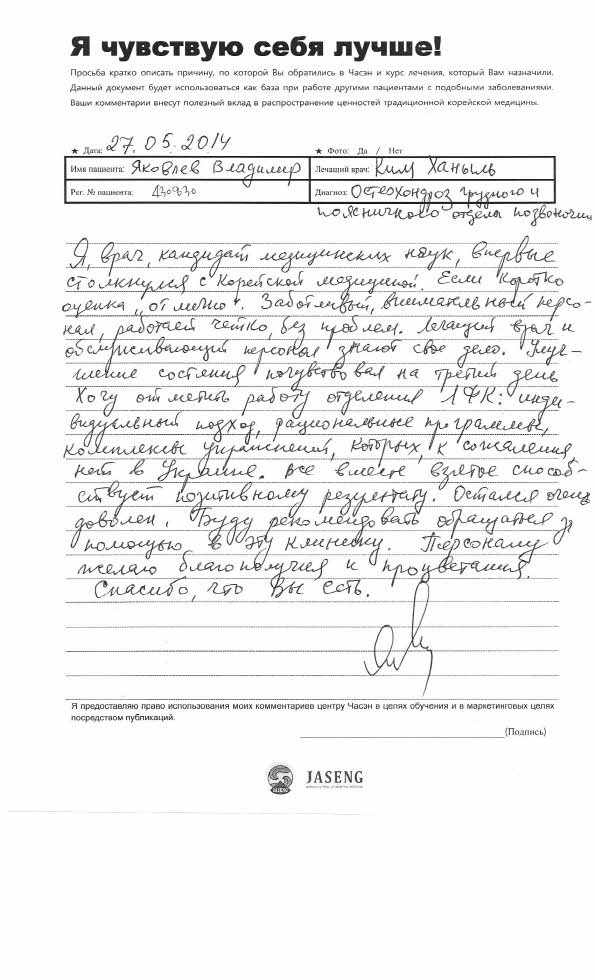 Я чувствую себя лучше!
Просьба кратко описать причину, по которой Вы обратились в Часэн и курс лечения, который Вам назначили.
Данный документ будет использоваться как база при работе другими пациентами с подобными заболеваниями.
Ваши комментарии внесут полезный вклад в распространение ценностей традиционной корейской медицины.
★ Дата: 27.05.2014 ★ Фото: Да / Нет
Имя пациента: Яковлев Владимир Лечащий врач: Ким Ханыль
Рег. № пациента: 430830 Диагноз: Остеохондроз грудного и
поясничного отдела позвоночн
Я, врач, кандидат медицинских наук, впервые
столкнулся с Корейской медициной. Если коротко
оценка „отлично". Заботливый, внимательный персо-
нал, работает четко, без проблем. Лечащий врач и
обслуживающий персонал знают свое дело. Улуч-
шение состояния почувствовал на третий день
Хочу отметить работу отделения ЛФК: инди-
видуальный подход, рациональные программы,
комплексы упражнений, которых, к сожалению,
нет в Украине. Все вместе взятое способ-
ствует позитивному результату. Остался очень
доволен. Буду рекомендовать обращаться за
помощью в эту клинику. Персоналу
желаю благополучия и процветания.
Спасибо, что Вы есть.
Я предоставляю право использования моих комментариев центру Часэн в целях обучения и в маркетинговых целях
посредством публикаций.
(Подпись)
JASENG JASENG